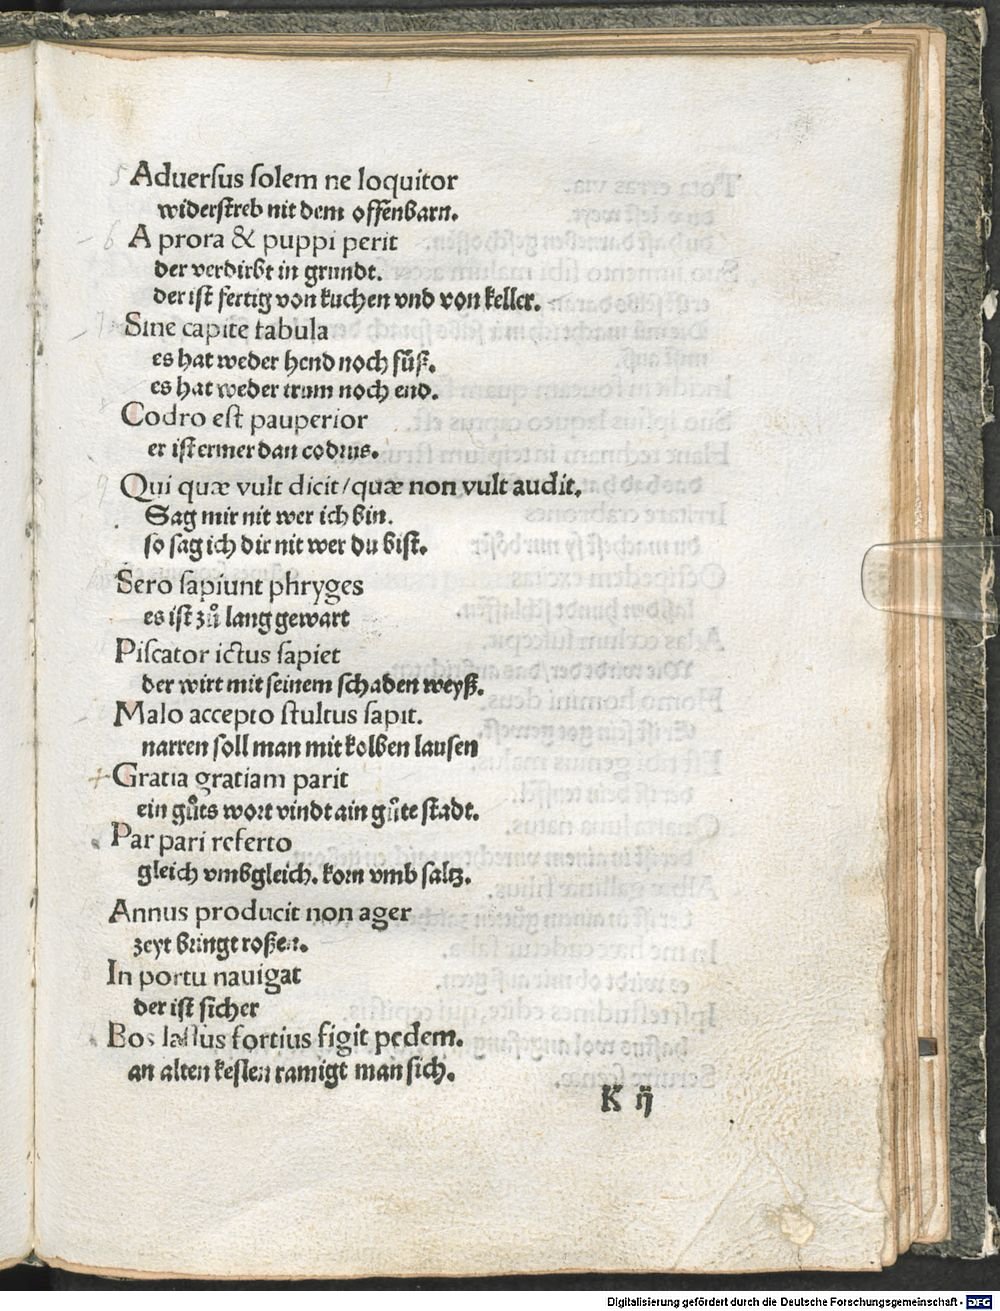 5 Adverſus ſolem ne loquitor
widerſtreb nit dem offenbarn.
6 A prora & puppi perit
der verdirbt in grundt.
der iſt fertig von kuchen vnd von keller.
7 Sine capite tabula
es hat weder hend noch fuͤß.
es hat weder trum noch end.
Codro eſt pauperior
er iſt ermer dan codrus.
9 Qui quæ vult dicit/quæ non vult audit.
Sag mir nit wer ich bin.
ſo ſag ich dir nit wer du biſt.
Sero ſapiunt phryges
es iſt zuͦ lang gewart
Piſcator ictus ſapiet
der wirt mit ſeinem ſchaden weyß.
Malo accepto ſtultus ſapit.
narren ſoll man mit kolben lauſen
+ Gratia gratiam parit
ein guͦts wort vindt ain guͦte ſtadt.
Par pari referto
gleich vmbgleich. korn vmb ſaltz.
Annus producit non ager
zeyt bringt roßen.
In portu nauigat
der iſt ſicher
Bos laſſus fortius figit pedem.
an alten keſlen ramigt man ſich.
K ij
Digitalisierung gefördert durch die Deutsche Forschungsgemeinschaft - DFG